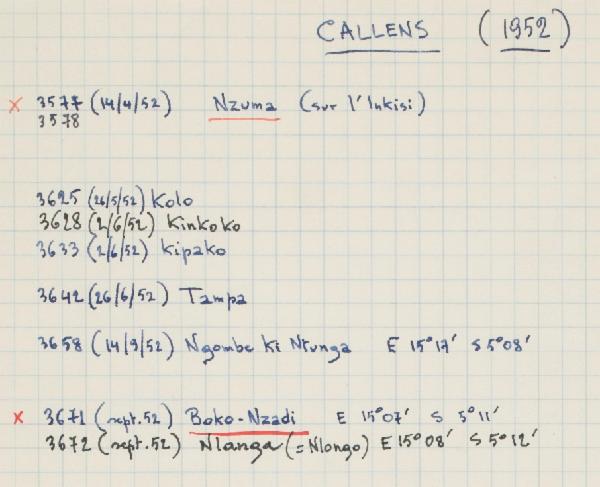 CALLENS (1952)
x 3577 (14/4/52) Nzuma (sur l'Inkisi)
3578
3625 (26/5/52) Kolo
3628 (2/6/52) Kinkoko
3633 (2/6/52) Kipako
3642 (26/6/52) Tampa
3658 (14/9/52) Ngombe Ki Ntunga E 15°17' S 5°08'
x 3671 (sept. 52) Boko-Nzadi E 15°07' S 5°11'
3672 (sept. 52) Nlanga (= Nlongo) E 15°08' S 5°12'